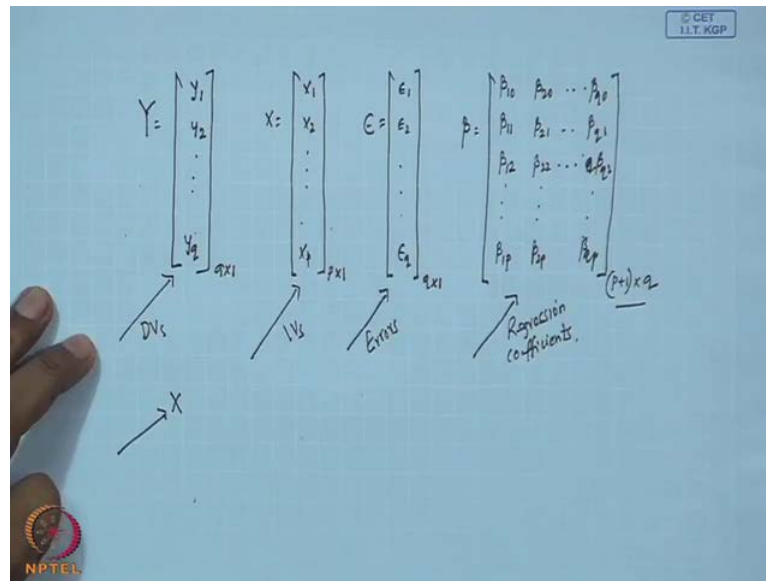 © CET
I.I.T. KGP
Y = [ y₁ y₂ . . . y_q ] q×1
X = [ x₁ x₂ . . . x_p ] p×1
ϵ = [ ϵ₁ ϵ₂ . . . ϵ_q ] q×1
β = [ β₁₀ β₂₀ ... β_q0
β₁₁ β₂₁ .. β_q1
β₁₂ β₂₂ ... β_q2
. . .
β₁p β₂p β_qp ] (p+1)×q
DVs
IVs
Errors
Regression
coefficients.
X
NPTEL